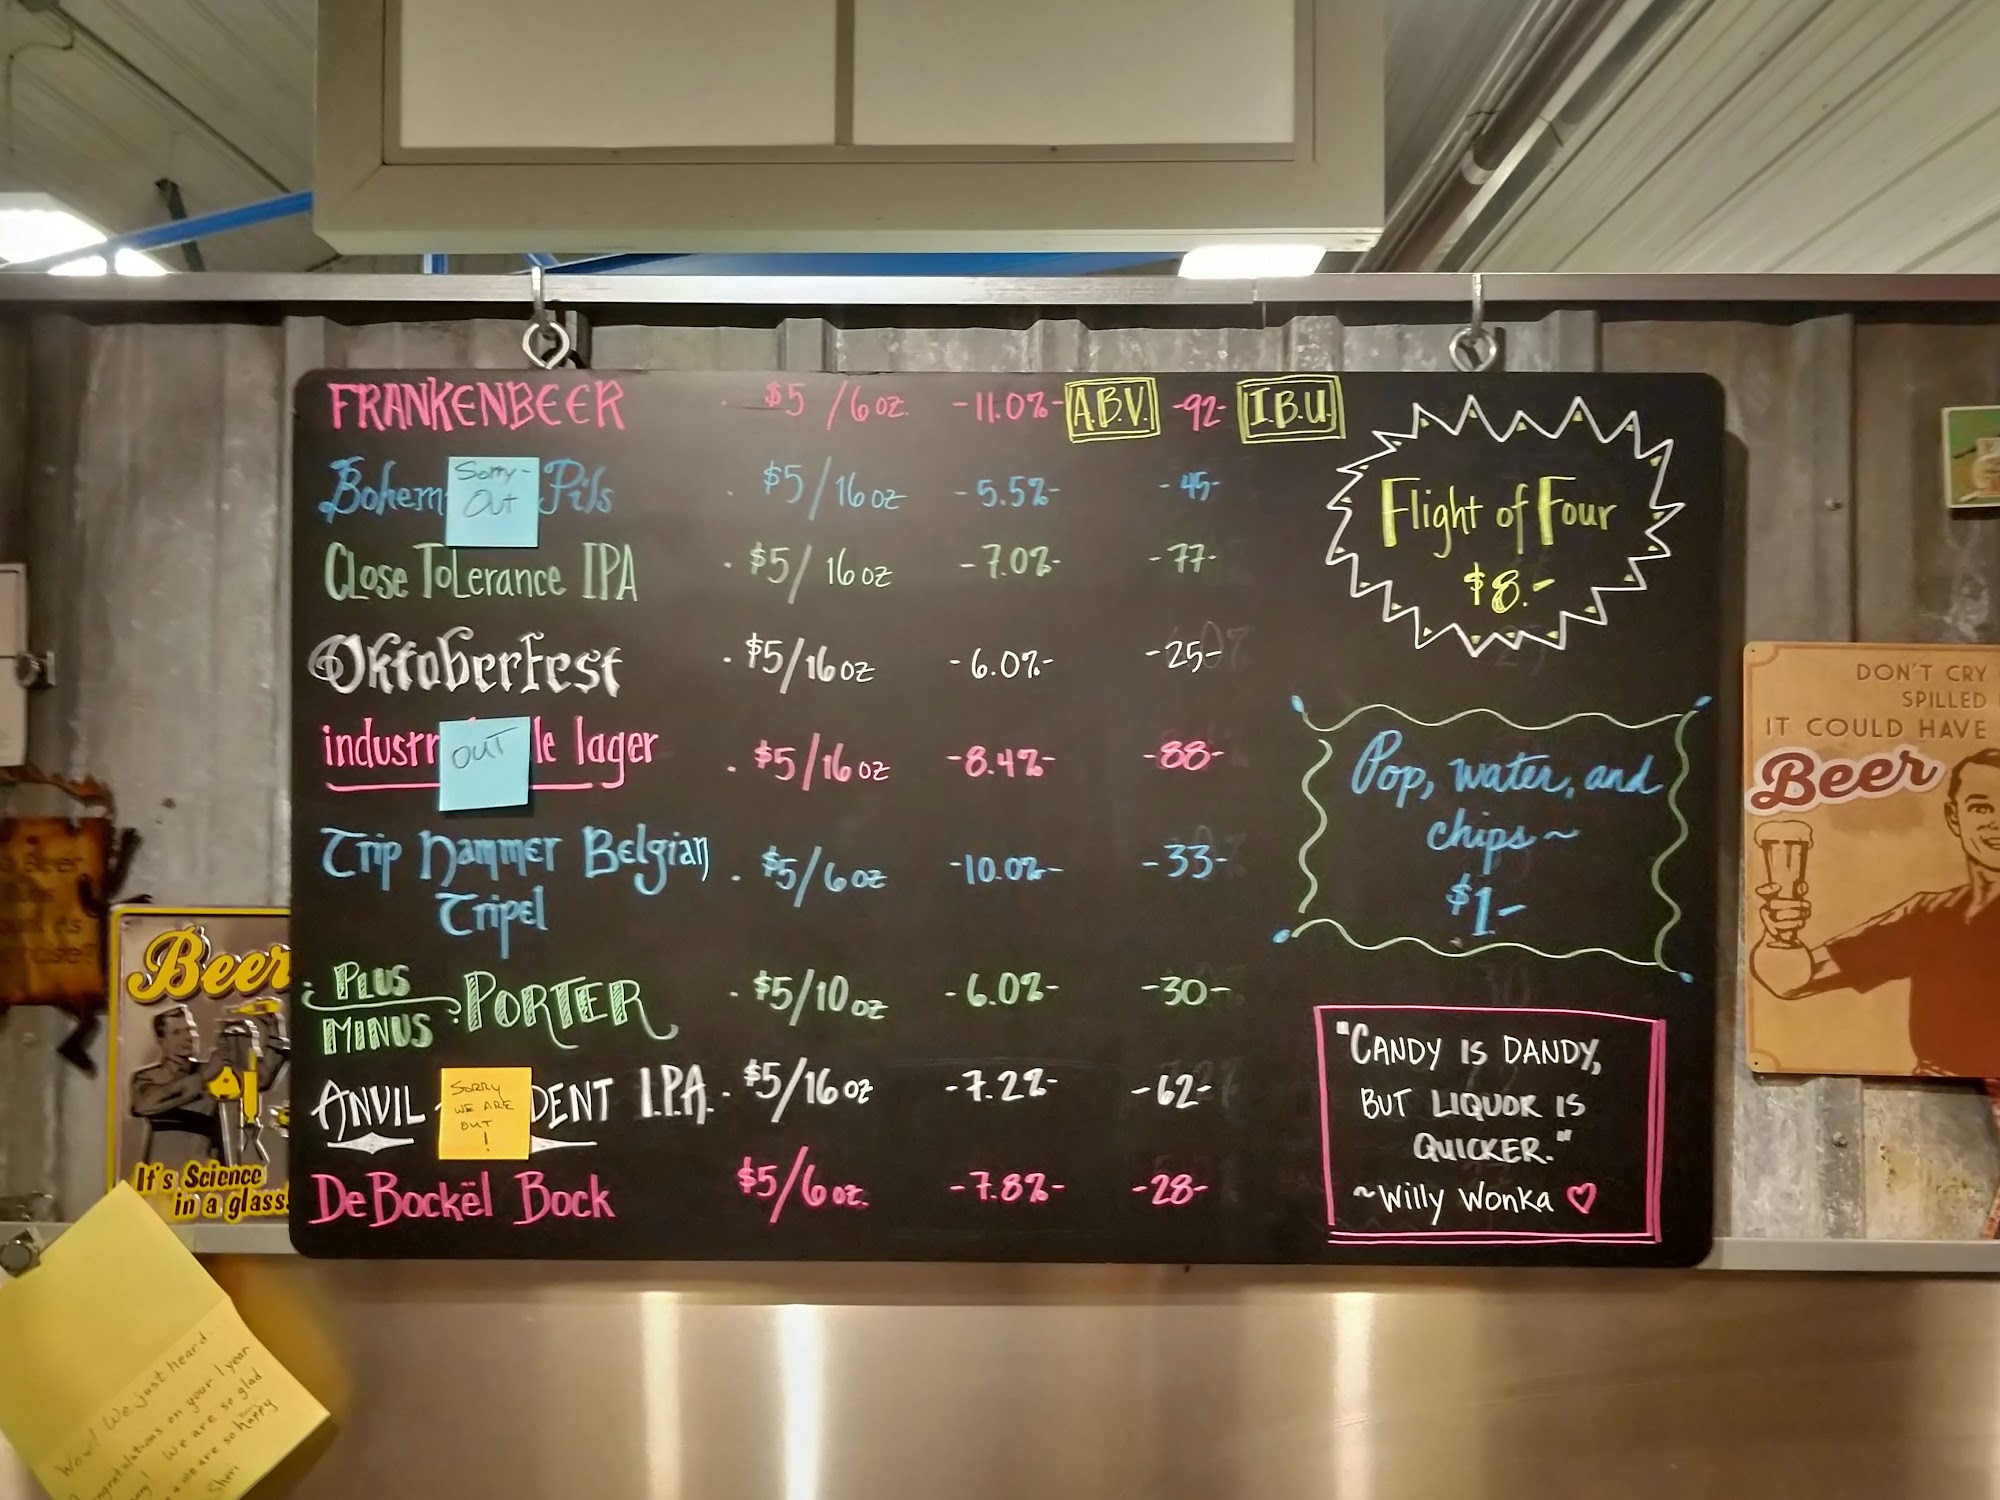 FRANKENBEER . $5 /6 oz. -11.0%- A.B.V. -92- I.B.U.
Bohem Sorry- Out Pils . $5/16 oz -5.5%- -45-
Close Tolerance IPA . $5/ 16 oz -7.0%- -77-
Oktoberfest . $5/16 oz -6.0%- -25-
industr OUT le lager . $5/16 oz -8.4%- -88-
Trip Hammer Belgian . $5/6 oz -10.0%- -33-
Tripel
PLUS
MINUS PORTER . $5/10 oz -6.0%- -30-
ANVIL SORRY WE ARE OUT ! DENT I.P.A. . $5/16 oz -7.2%- -62-
DeBockël Bock $5/6 oz. -7.8%- -28-
Flight of Four
$8.-
Pop, water, and
chips~
$1-
"CANDY IS DANDY,
BUT LIQUOR IS
QUICKER."
~Willy Wonka ♡
DON'T CRY
SPILLED
IT COULD HAVE
Beer
Beer
It's Science
in a glass!
Beer
Wow! We just heard...
on your 1 year
We are so glad
we are so happy
Sheri